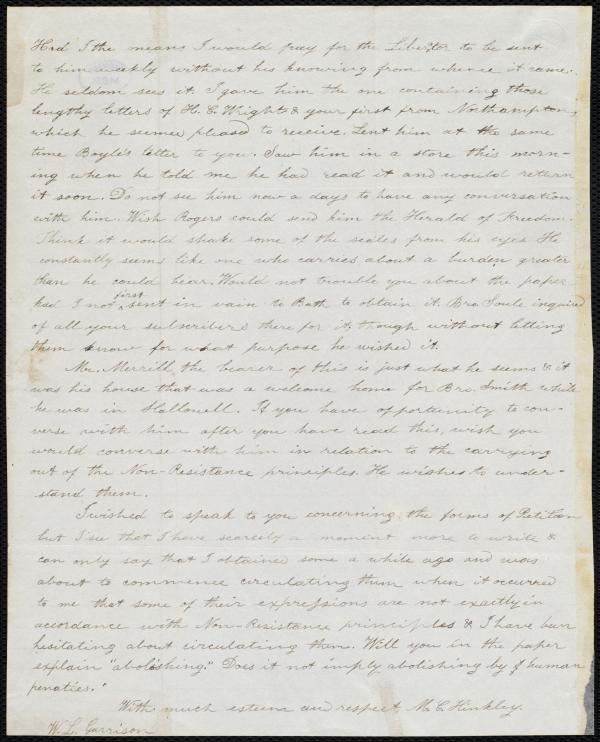 Had I the means I would pay for the Liberator to be sent
to him weekly without his knowing from whence it came.
He seldom sees it. I gave him the one containing those
lengthy letters of H. C. Wright & your first from Northampton,
which he seemed pleased to receive. Lent him at the same
time Boyle's letter to you. Saw him in a store this morn-
ing when he told me he had read it and would return
it soon. Do not see him now a days to have any conversation
with him. Wish Rogers could send him the Herald of Freedom.
Think it would shake some of the scales from his eyes. He
constantly seems like one who carries about a burden greater
than he could bear. Would not trouble you about the paper
had I not first sent in vain to Bath to obtain it. Bro Soule inquired
of all your subscribers there for it, though without letting
them know for what purpose he wished it.
Mr. Merrill, the bearer of this is just what he seems & it
was his house that was a welcome home for Bro. Smith while
he was in Hallowell. If you have opportunity to con-
verse with him after you have read this, wish you
would converse with him in relation to the carrying
out of the Non-Resistance principles. He wishes to under-
stand them.
I wished to speak to you concerning the forms of Petition
but I see that I have scarcely a moment more to write &
can only say that I obtained some a while ago and was
about to commence circulating them when it occurred
to me that some of their expressions are not exactly in
accordance with Non-Resistance principles & I have been
hesitating about circulating them. Will you in the paper
explain "abolishing." Does it not imply abolishing by human
penalties.
With much esteem and respect M. C. Hinkley.
W. L. Garrison